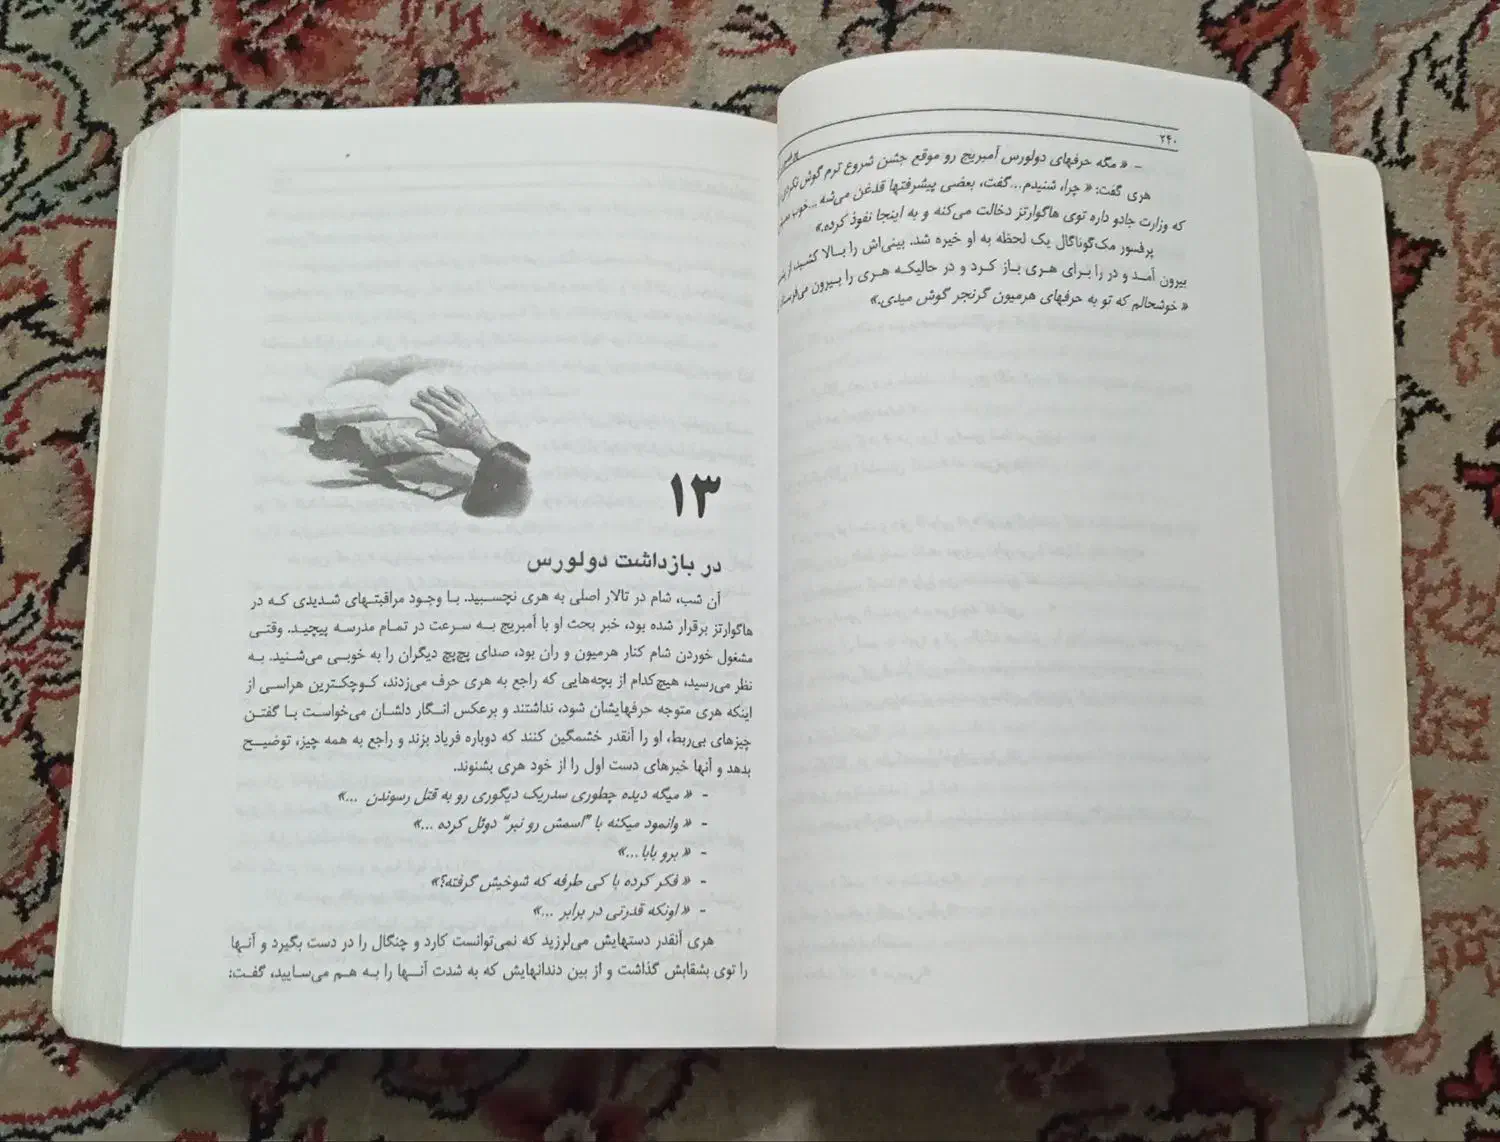 ۲۴۰
- « مگه حرفهای دولورس آمبریج رو موقع جشن شروع ترم گوش
هری گفت: « چرا، شنیدم...گفت، بعضی پیشرفتها قدغن می‌شه ...خوب
که وزارت جادو داره توی هاگوارتز دخالت می‌کنه و به اینجا نفوذ کرده.»
پرفسور مک‌گوناگال یک لحظه به او خیره شد. بینی‌اش را بالا کشید، از
بیرون آمد و در را برای هری باز کرد و در حالیکه هری را بیرون
« خوشحالم که تو به حرفهای هرمیون گرنجر گوش میدی.»
۱۳
در بازداشت دولورس
آن شب، شام در تالار اصلی به هری نچسبید. با وجود مراقبتهای شدیدی که در
هاگوارتز برقرار شده بود، خبر بحث او با آمبریج به سرعت در تمام مدرسه پیچید. وقتی
مشغول خوردن شام کنار هرمیون و ران بود، صدای پچ‌پچ دیگران را به خوبی می‌شنید. به
نظر می‌رسید، هیچ‌کدام از بچه‌هایی که راجع به هری حرف می‌زدند، کوچکترین هراسی از
اینکه هری متوجه حرفهایشان شود، نداشتند و برعکس انگار دلشان می‌خواست با گفتن
چیزهای بی‌ربط، او را آنقدر خشمگین کنند که دوباره فریاد بزند و راجع به همه چیز، توضیح
بدهد و آنها خبرهای دست اول را از خود هری بشنوند.
- « میگه دیده چطوری سدریک دیگوری رو به قتل رسوندن ...»
- « وانمود میکنه با "اسمش رو نبر" دوئل کرده ...»
- « برو بابا...»
- « فکر کرده با کی طرفه که شوخیش گرفته؟»
- « اونکه قدرتی در برابر ...»
هری آنقدر دستهایش می‌لرزید که نمی‌توانست کارد و چنگال را در دست بگیرد و آنها
را توی بشقابش گذاشت و از بین دندانهایش که به شدت آنها را به هم می‌سایید، گفت: